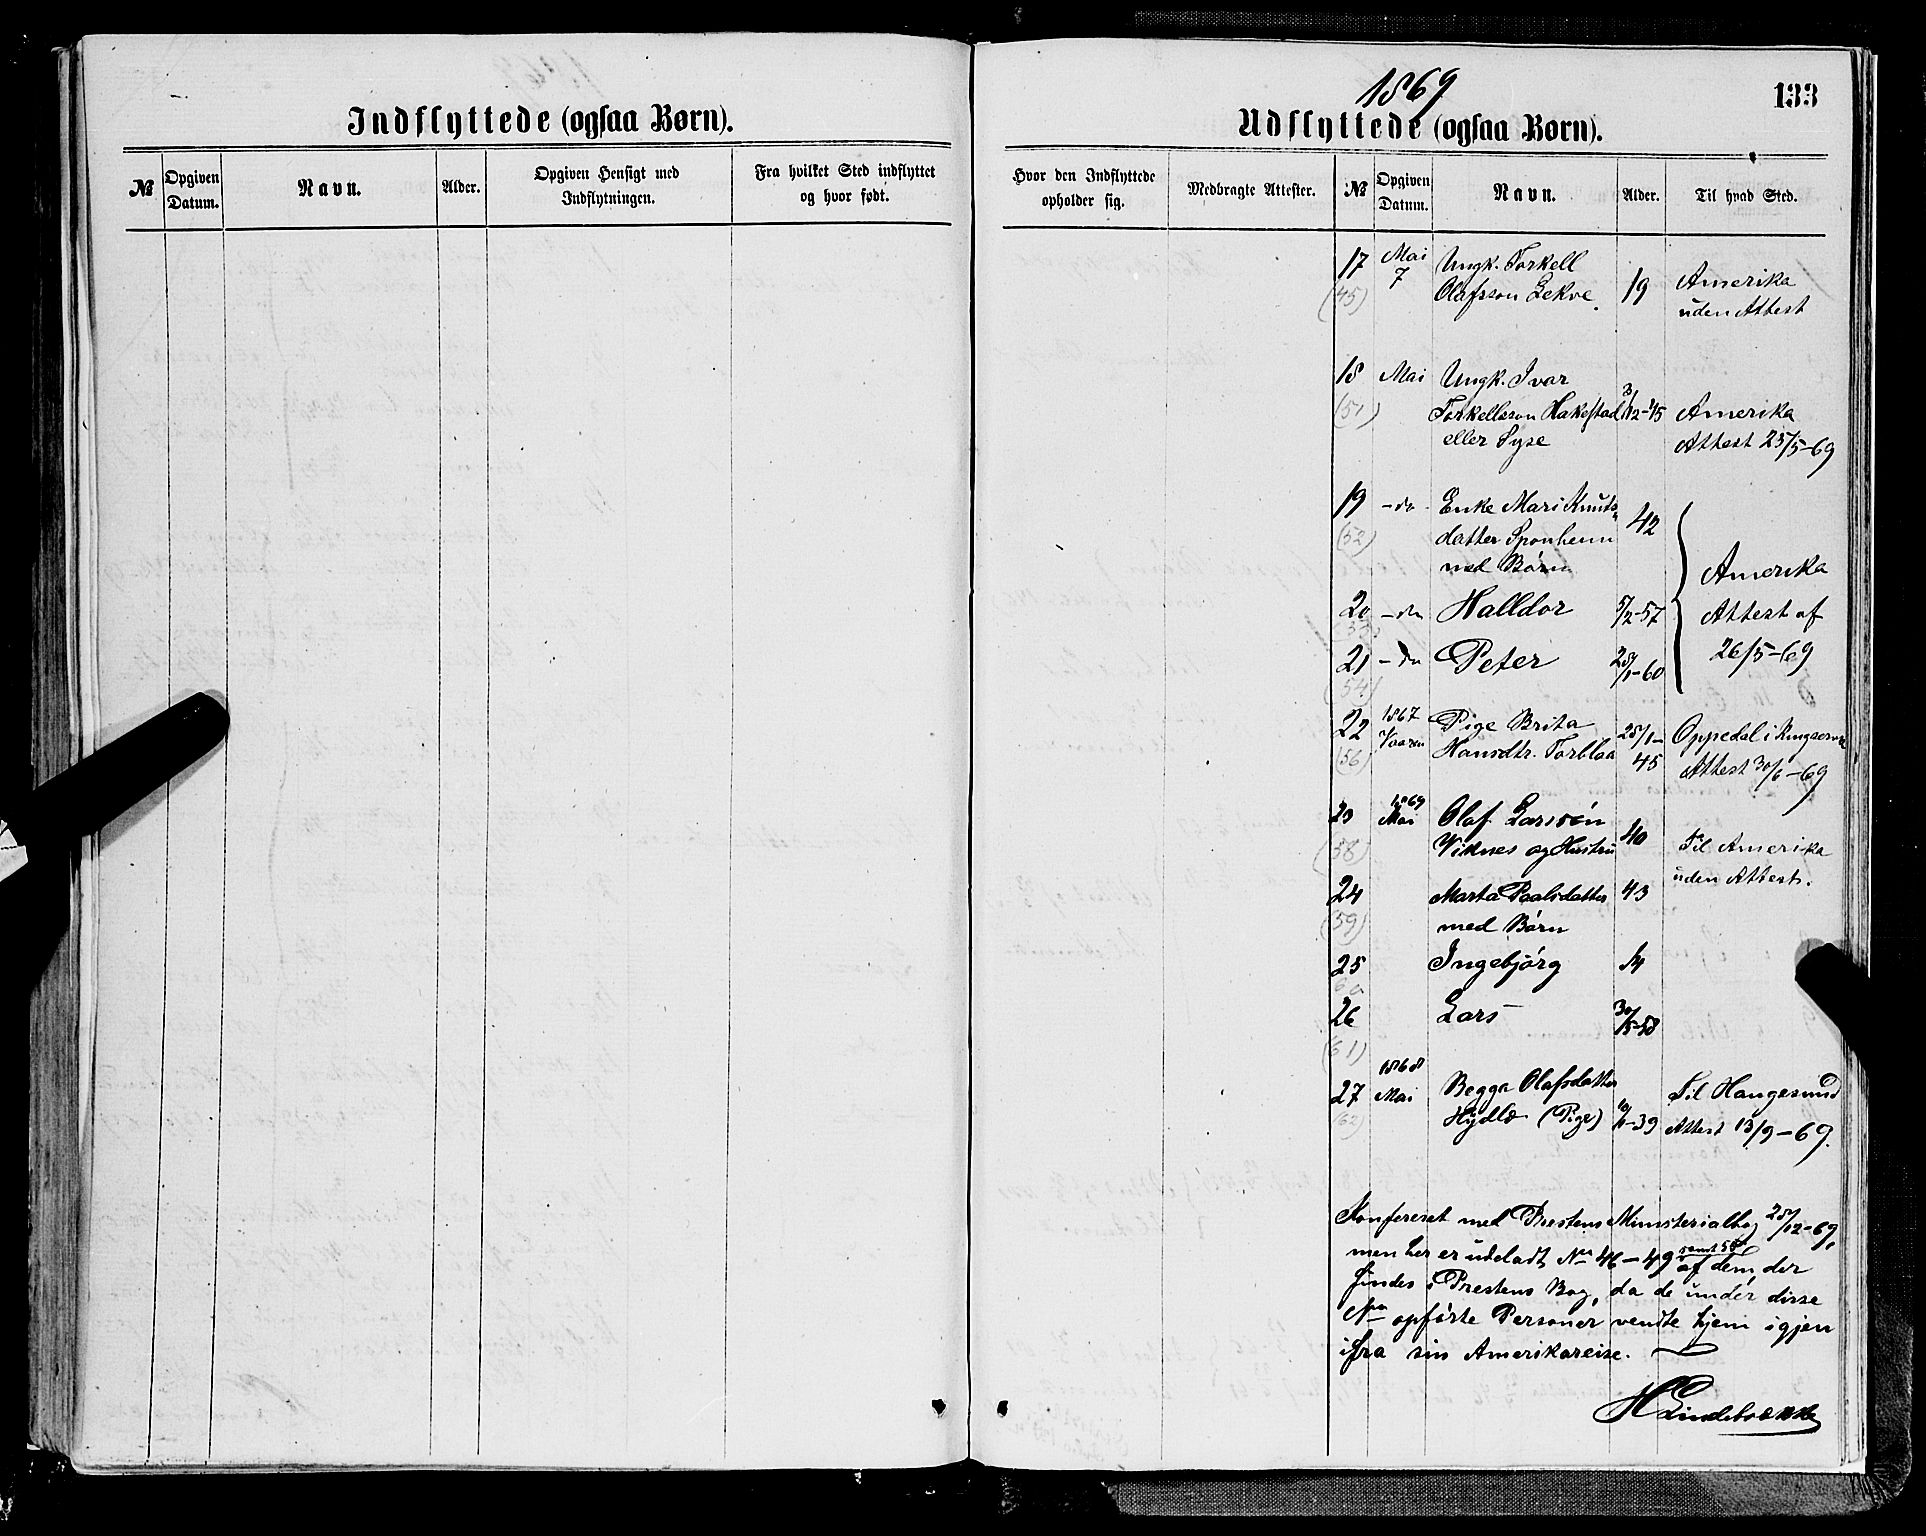 Indflyttede (ogsaa Børn).
№
Opgiven Datum.
Navn.
Alder.
Opgiven Hensigt med Indflytningen.
Fra hvilket Sted indflyttet og hvor født.
1869
133
Udflyttede (ogsaa Børn).
Hvor den Indflyttede opholder sig.
Medbragte Attester.
№
Opgiven Datum.
Navn.
Alder.
Til hvad Sted.
17 Mai Ungk. Torkell
(45) 7 Olafsson Lekve. 19 Amerika
uden Attest
18 Mai Ungk. Ivar
(51) Torkellsson Hakestad 3/12-45 Amerika
eller Syse Attest 25/5-69
19 - do Enke Mari Knuts-
(52) datter Sponheim 42
med Børn Amerika
20 - do Halldor 5/2-57 Attest af
21 - do Peter 28/1-60 26/5-69
(54)
22 1867 Pige Brita 25/1-
(56) Vaaren Hansdtr. Torblaa 45 Oppedal i
Attest 30/6-69
23 1869 Mai Olaf Larssön
(58) Viknes og Hustru 40 Til Amerika
uden Attest.
24 Marta Paalsdatter 43
(59) med Børn
25 Ingebjörg 14
60
26 Lars 30/5-58
(61)
27 1868 Mai Begga Olafsdatter Til Haugesund
(62) Hydle (Pige) 10/11-39 Attest 13/9-69.
Konfereret med Prestens Ministerialbog 28/12-69,
men her er udeladt No 46-49 samt 50 af dem, der
findes i Prestens Bog, da de under disse
No opförte Personer vendte hjem igjen
ifra sin Amerikareise.
H Lindebrække